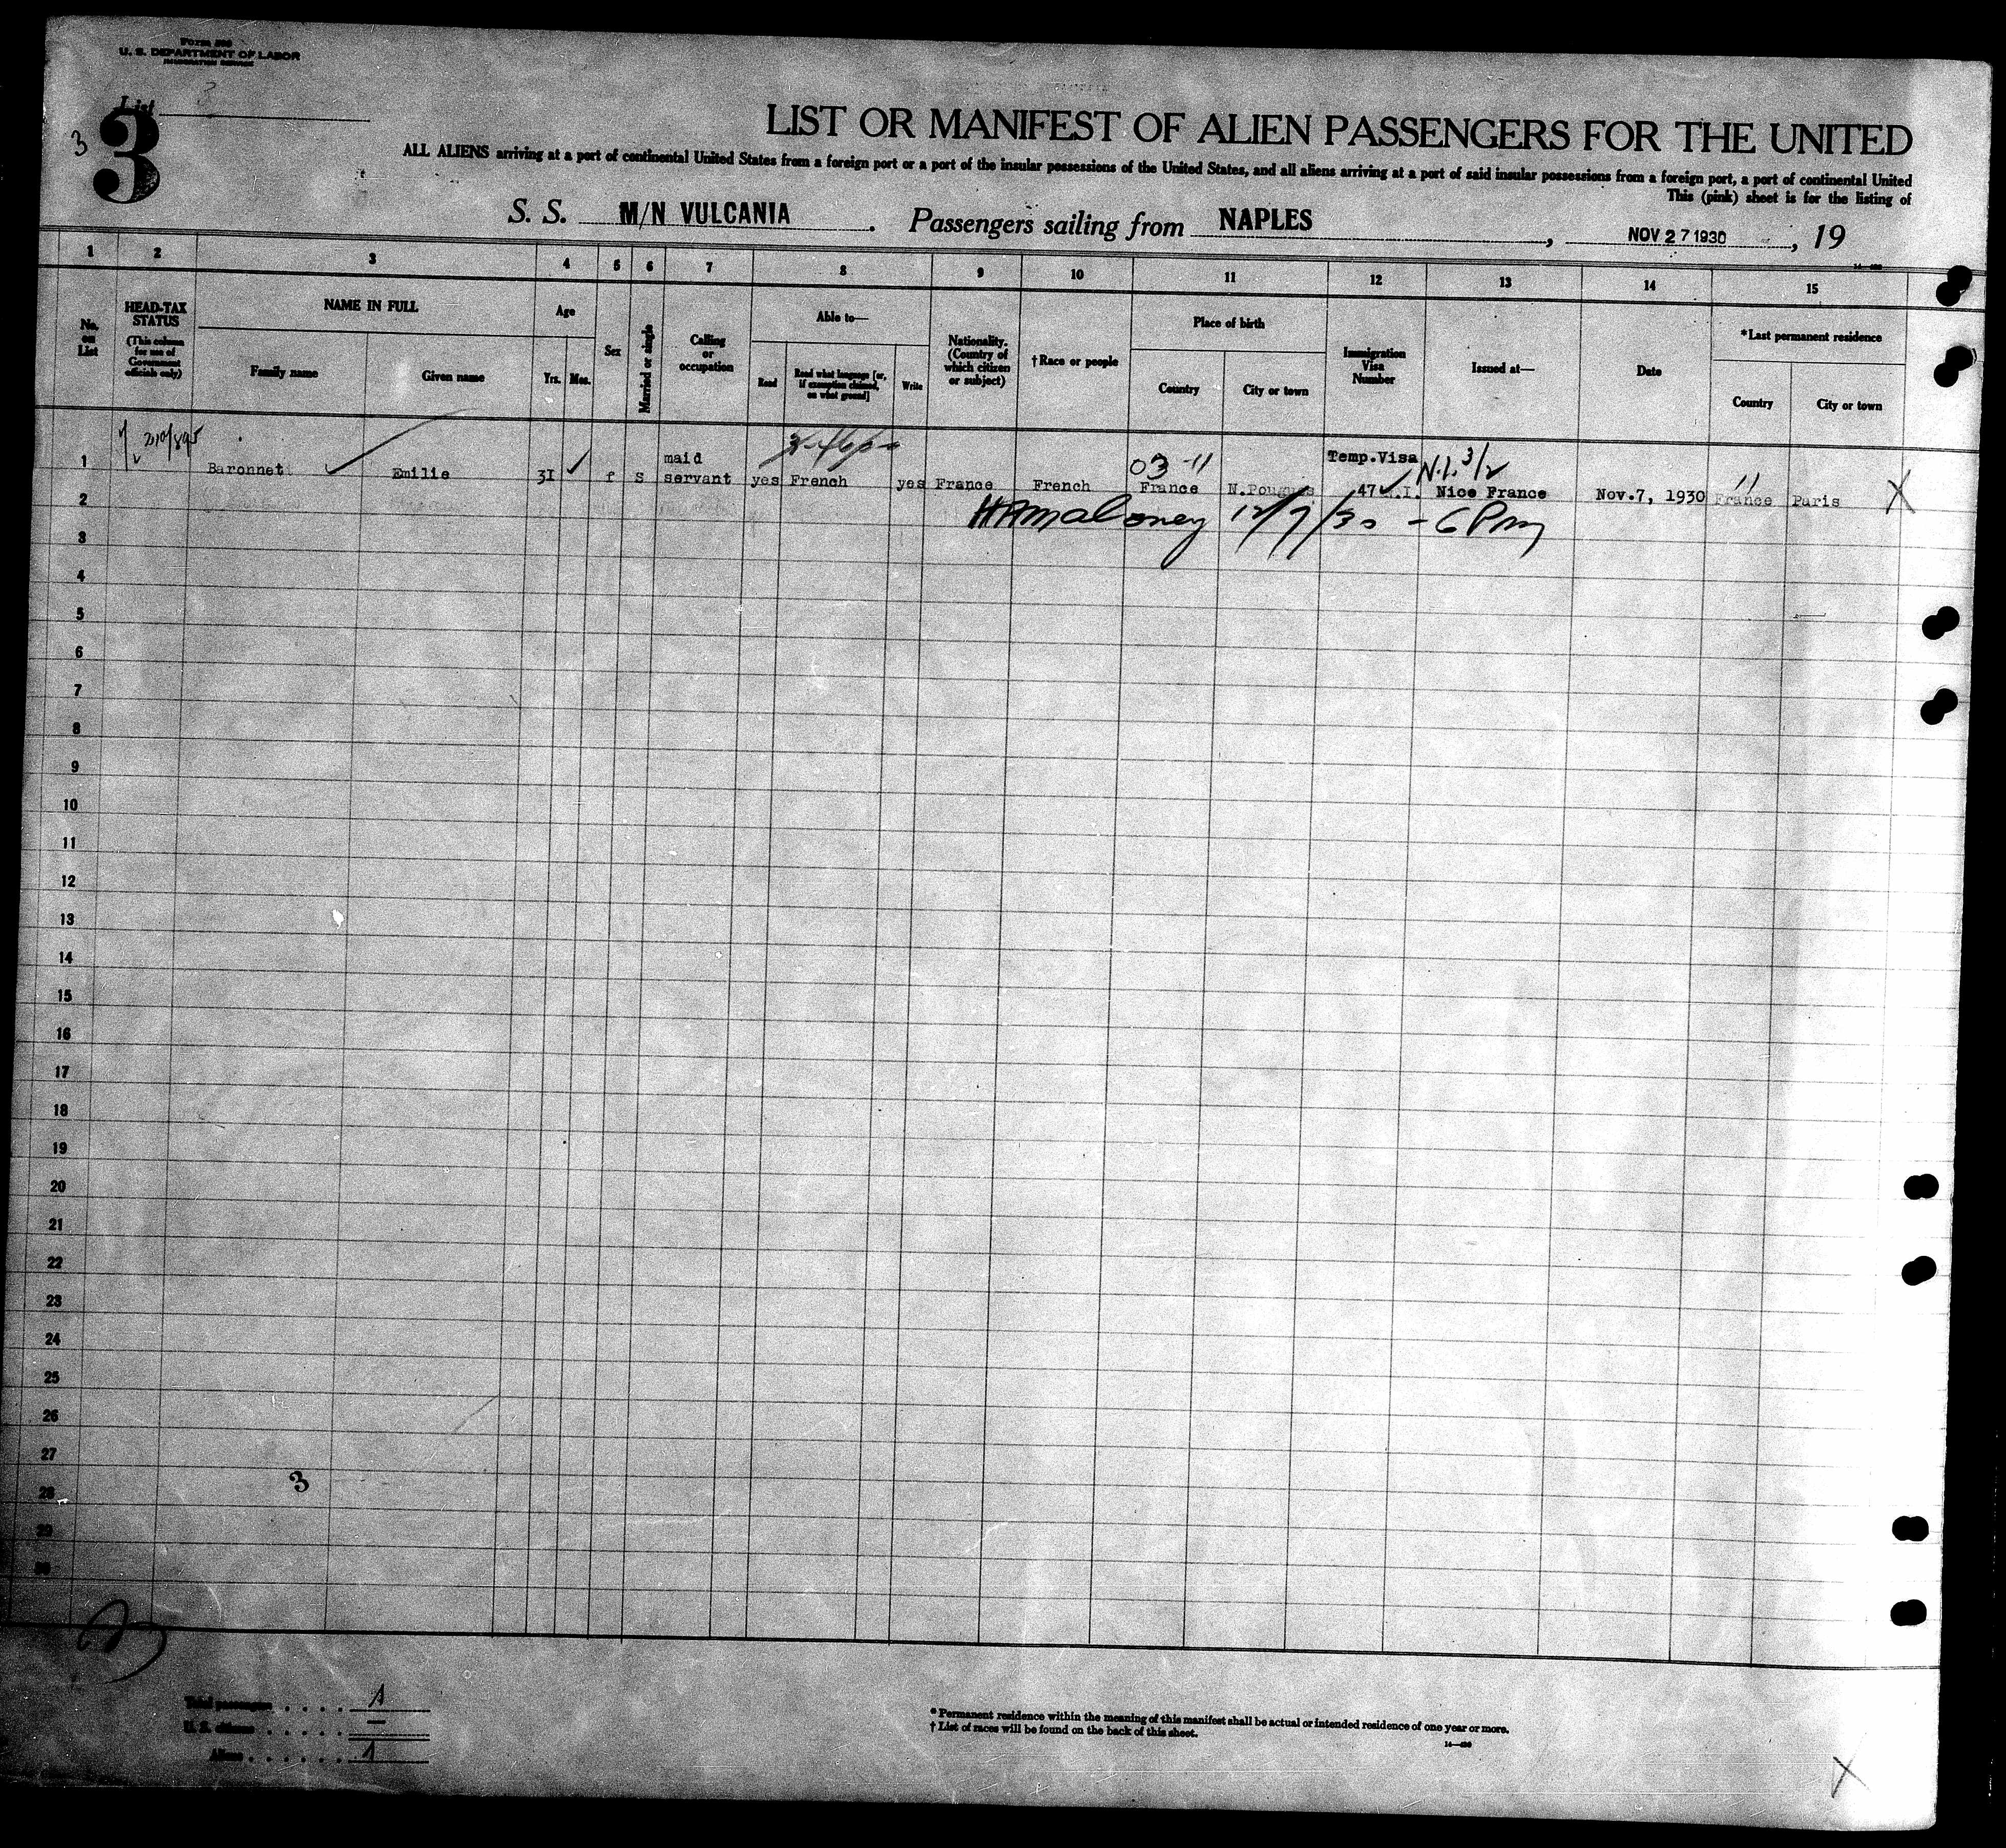 Form 500
U. S. DEPARTMENT OF LABOR
IMMIGRATION SERVICE
List
3
3
LIST OR MANIFEST OF ALIEN PASSENGERS FOR THE UNITED
ALL ALIENS arriving at a port of continental United States from a foreign port or a port of the insular possessions of the United States, and all aliens arriving at a port of said insular possessions from a foreign port, a port of continental United
This (pink) sheet is for the listing of
S. S. M/N VULCANIA . Passengers sailing from NAPLES , NOV 27 1930 , 19
1 2 3 4 5 6 7 8 9 10 11 12 13 14 15
No. on List
HEAD-TAX STATUS
(This column for use of Government officials only)
NAME IN FULL
Family name
Given name
Age
Yrs.
Mos.
Sex
Married or single
Calling or occupation
Able to—
Read
Read what language [or, if exemption claimed, on what ground]
Write
Nationality. (Country of which citizen or subject)
†Race or people
Place of birth
Country
City or town
Immigration Visa Number
Issued at—
Date
*Last permanent residence
Country
City or town
1 Baronnet Emilie 31 f s maid servant yes French yes France French 03-11 France N. Temp.Visa 47 N.I. 3/2 Nice France Nov.7, 1930 11 France Paris X
2 HAMaloney 12/7/30 - 6 Pm
3
4
5
6
7
8
9
10
11
12
13
14
15
16
17
18
19
20
21
22
23
24
25
26
27
3
28
29
30
Total passengers . . . . 1
U. S. citizens . . . . . —
Aliens . . . . . . 1
* Permanent residence within the meaning of this manifest shall be actual or intended residence of one year or more.
† List of races will be found on the back of this sheet.
X